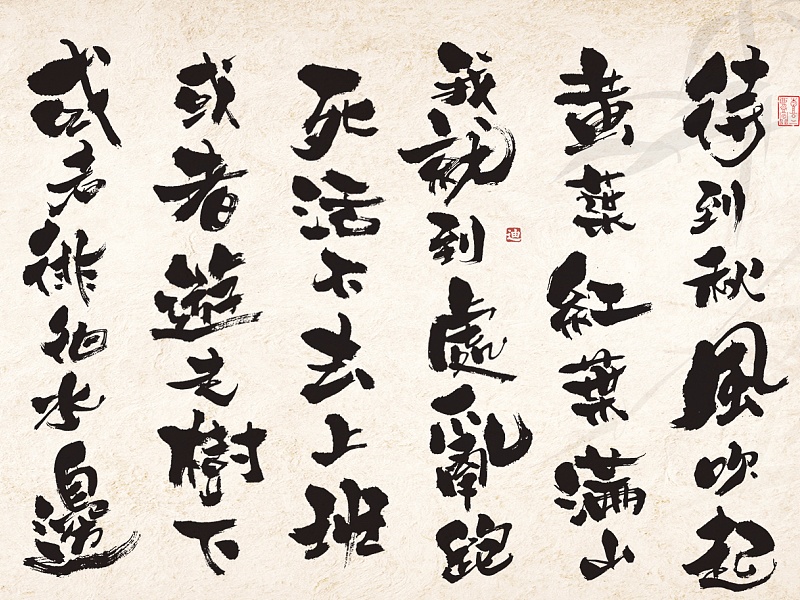 待到秋風吹起
黃葉紅葉滿山
我就到處亂跑
死活不去上班
或者遊走樹下
或者徘徊水邊